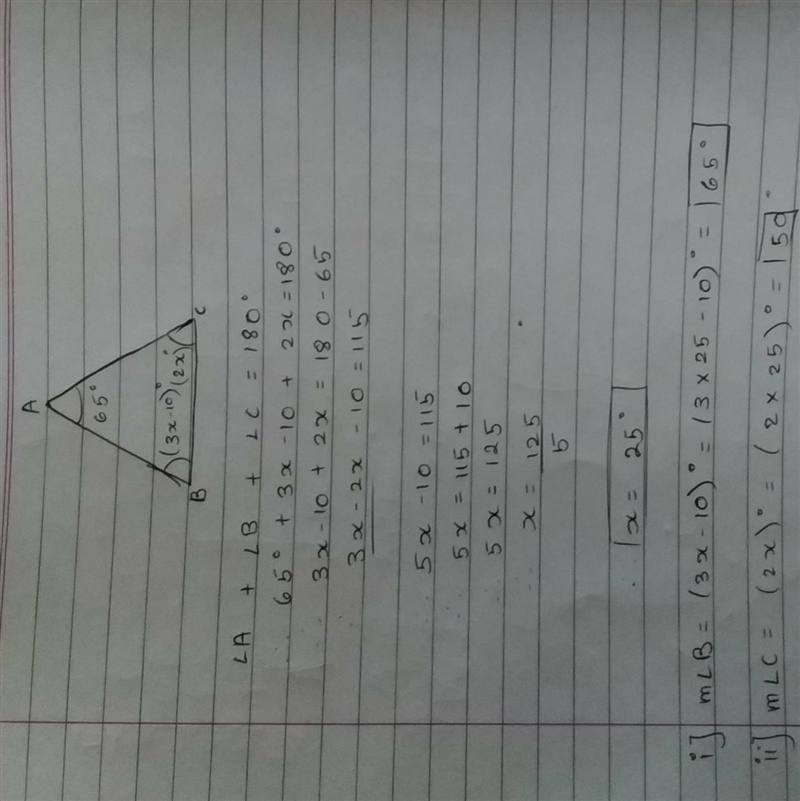 A
65°
(3x-10)° (2x)°
B C
∠A + ∠B + ∠C = 180°
65° + 3x - 10 + 2x = 180°
3x - 10 + 2x = 180 - 65
3x - 2x - 10 = 115
5x - 10 = 115
5x = 115 + 10
5x = 125
x = 125/5
x = 25°
i] m∠B = (3x - 10)° = (3 × 25 - 10)° = 65°
ii] m∠C = (2x)° = (2 × 25)° = 50°